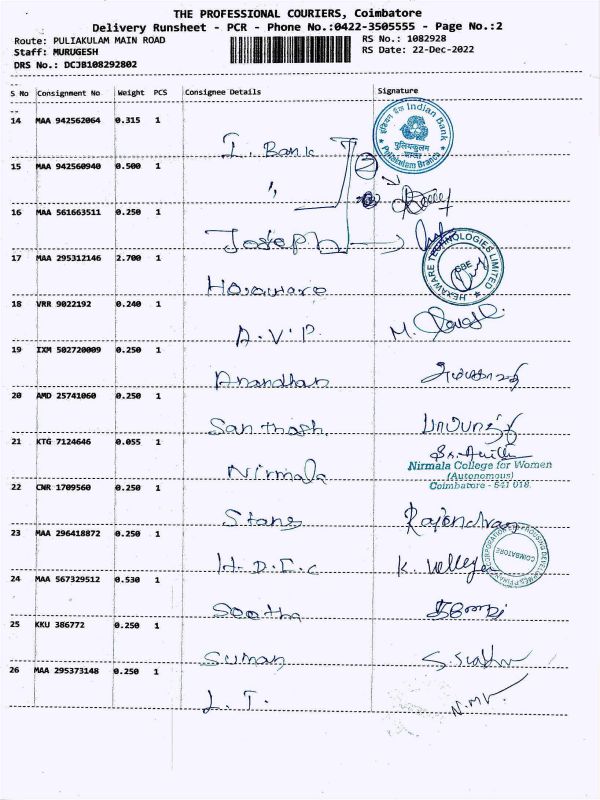 THE PROFESSIONAL COURIERS, Coimbatore
Delivery Runsheet - PCR - Phone No.:0422-3505555 - Page No.:2
Route: PULIAKULAM MAIN ROAD
RS No.: 1082928
Staff: MURUGESH
RS Date: 22-Dec-2022
DRS No.: DCJB108292802
S No Consignment No Weight PCS Consignee Details Signature
14 MAA 942562064 0.315 1 I. Bank
Indian Bank
पुलियकुलम
शाखा
Puliakulam Branch
15 MAA 942560940 0.500 1 "
16 MAA 561663511 0.250 1 Joseph
17 MAA 295312146 2.700 1 Hexaware
HEXAWARE TECHNOLOGIES LIMITED
CBE
18 VRR 9022192 0.240 1 A.V.P.
19 IXM 502720009 0.250 1 Anandhan
20 AMD 25741060 0.250 1 Santhosh.
21 KTG 7124646 0.055 1 Nirmala
Nirmala College for Women
(Autonomous)
Coimbatore - 641 018.
22 CNR 1709560 0.250 1 Stanes Rajendran
23 MAA 296418872 0.250 1 H.D.F.C
COIMBATORE
24 MAA 567329512 0.530 1
25 KKU 386772 0.250 1 Suman
26 MAA 295373148 0.250 1 L.T.